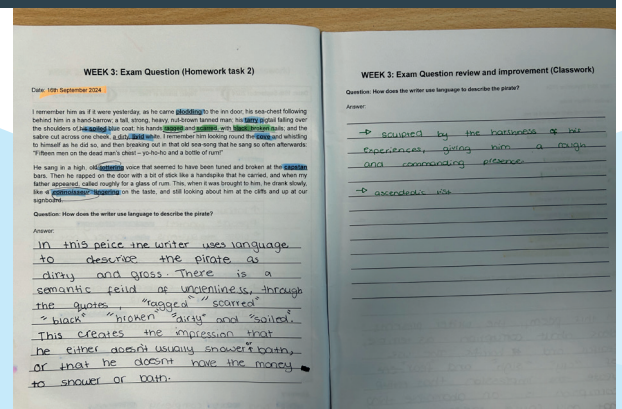 WEEK 3: Exam Question (Homework task 2)
Date: 16th September 2024
I remember him as if it were yesterday, as he came plodding to the inn door, his sea-chest following
behind him in a hand-barrow; a tall, strong, heavy, nut-brown tanned man; his tarry pigtail falling over
the shoulders of his soiled blue coat; his hands ragged and scarred, with black, broken nails; and the
sabre cut across one cheek, a dirty, livid white. I remember him looking round the cove and whistling
to himself as he did so, and then breaking out in that old sea-song that he sang so often afterwards:
"Fifteen men on the dead man's chest – yo-ho-ho and a bottle of rum!"
He sang in a high, old tottering voice that seemed to have been tuned and broken at the capstan
bars. Then he rapped on the door with a bit of stick like a handspike that he carried, and when my
father appeared, called roughly for a glass of rum. This, when it was brought to him, he drank slowly,
like a connoisseur, lingering on the taste, and still looking about him at the cliffs and up at our
signboard.
Question: How does the writer use language to describe the pirate?
Answer:
In this peice the writer uses language
to describe the pirate as
dirty and gross. There is a
semantic feild of uncleniness, through
the quotes, "ragged" "scarred"
"black" "broken" "dirty" and "soiled".
This creates the impression that
he either doesn't usually shower or bath,
or that he doesnt have the money
to shower or bath.
WEEK 3: Exam Question review and improvement (Classwork)
Question: How does the writer use language to describe the pirate?
Answer:
→ sculpted by the harshness of his
experiences, giving him a rough
and commanding presence.
→ ascendedic